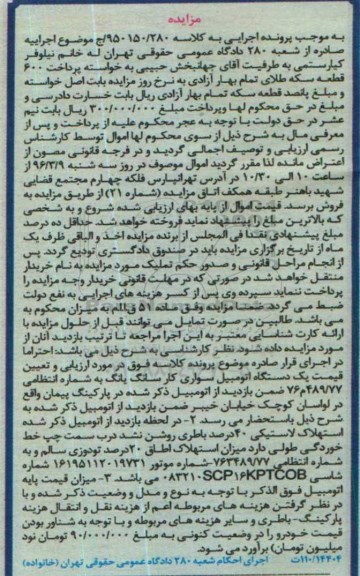 مزایده
به موجب پرونده اجرایی به کلاسه ۹۵۰۱۵۰/۲۸۰ج/ موضوع اجراییه
صادره از شعبه ۲۸۰ دادگاه عمومی حقوقی تهران له خانم نیلوفر
کیارستمی به طرفیت آقای جهانبخش حبیبی به خواسته پرداخت ۶۰۰
قطعه سکه طلای تمام بهار آزادی به نرخ روز مزایده بابت اصل خواسته
و مبلغ پانصد قطعه سکه تمام بهار آزادی ریال بابت خسارت دادرسی و
مبلغ در حق محکوم لها وپرداخت مبلغ ۳۰۰/۰۰۰/۰۰۰ ریال بابت نیم
عشر در حق دولت با توجه به عجز محکوم علیه از پرداخت و پس از
معرفی مال به شرح ذیل از سوی محکوم لها اموال توسط کارشناس
رسمی ارزیابی و توصیف اجمالی گردید و در فرجه قانونی مصون از
اعتراض مانده لذا مقرر گردید اموال موصوف در روز سه شنبه ۹۶/۳/۹ از
ساعت ۱۰ الی ۱۰/۳۰ در آدرس تهرانپارس فلکه چهارم مجتمع قضایی
شهید باهنر طبقه همکف اتاق مزایده (شماره ۲۱) از طریق مزایده به
فروش برسد. قیمت اموال از بابه بهای ارزیابی شده شروع و به شخصی
که بالاترین مبلغ را پیشنهاد نماید فروخته خواهد شد. حداقل ده درصد
مبلغ پیشنهادی نقدا فی المجلس از برنده مزایده اخذ و الباقی ظرف یک
ماه از تاریخ برگزاری مزایده باید در صندوق دادگستری تودیع گردد. پس
از انجام مراحل قانونی و صدور حکم تملیک مورد مزایده به نام خریدار
منتقل خواهد شد در صورتی که در مهلت قانونی خریدار وجه مزایده را
پرداخت ننماید سپرده وی پس از کسر هزینه های اجرایی به نفع دولت
ضبط می گردد. ضمنا مزایده وفق ماده ۵۱ ق.ا.م به میزان محکوم به
می باشد. طالبین در صورت تمایل می توانند قبل از حلول مزایده با
ارائه کارت شناسایی معتبر به این اجرا مراجعه تا ترتیب بازدید آنان از
مورد مزایده داده شود. نظر کارشناسی به شرح ذیل می باشد: احتراما
در اجرای قرار صادره موضوع پرونده کلاسه فوق در مورد ارزیابی و تعیین
قیمت یک دستگاه اتومبیل سواری کار سانگ یانگ به شماره انتظامی
۷۶م۴۸۹/۷۷ ضمن بازدید از اتومبیل ذکر شده در پارکینگ پیمان واقع
در لواسان کوچک خیابان خیبر ضمن بازدید از اتومبیل ذکر شده به
شرح ذیل باستحضار می رسد. ۲- در لحظه بازدید از اتومبیل ذکر شده
استهلاک لاستیکی ۴۰درصد باطری روشن نشد درب سمت چپ خط
خوردگی طولی دارد میزان استهلاک اطاق ۲۰درصد تودوزی سالم و به
شماره انتظامی ۷۶۳۴۸۹/۷۷-شماره موتور ۱۶۱۹۵۱۱۲۰۱۹۷۳۱ شماره
شاسی KPTCOB۱۶SCP۰۸۳۲۱۰ می باشد. ۳- میزان قیمت پایه
اتومبیل فوق الذکر با توجه به نوع و مدل و وضعیت ذکر شده و با
در نظر گرفتن هزینه های مربوطه اعم از هزینه نقل و انتقال هزینه
پارکینگ- باطری و سایر هزینه های مربوطه و با توجه به شناور بودن
قیمت خودرو را در وضعیت کنونی به مبلغ ۹۰/۰۰۰/۰۰۰ تومان نود
میلیون تومان) برآورد می شود.
۱۱۰/۱۴۴۰۴ت اجرای احکام شعبه ۲۸۰ دادگاه عمومی حقوقی تهران (خانواده)